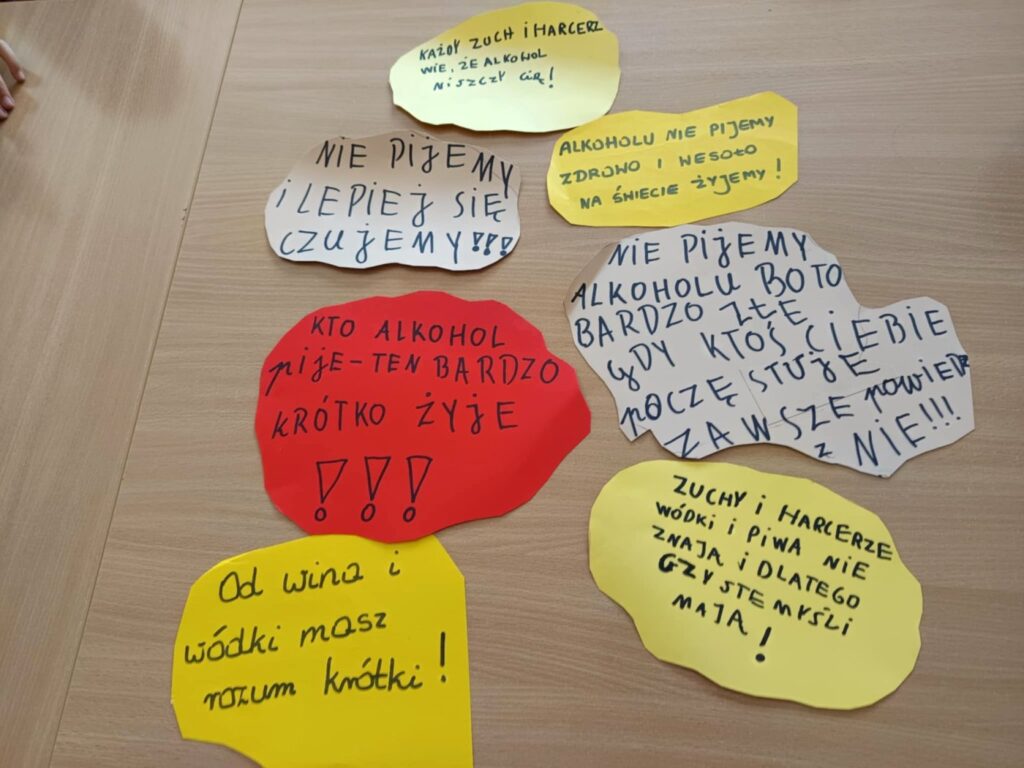 KAŻDY ZUCH i HARCERZ
WIE, ŻE ALKOHOL
NISZCZY CIĘ!
NIE PIJEMY
i LEPIEJ SIĘ
CZUJEMY!!!
ALKOHOLU NIE PIJEMY
ZDROWO I WESOŁO
NA ŚWIECIE ŻYJEMY!
NIE PIJEMY
ALKOHOLU BO TO
BARDZO ZŁE
GDY KTOŚ CIEBIE
POCZĘSTUJE
ZAWSZE POWIEDZ
NIE!!!
KTO ALKOHOL
pije-TEN BARDZO
KRÓTKO ŻYJE
!!!
ZUCHY i HARCERZE
WÓDKI i PIWA NIE
ZNAJĄ i DLATEGO
CZYSTE MYŚLI
MAJĄ!
Od wina i
wódki masz
rozum krótki!